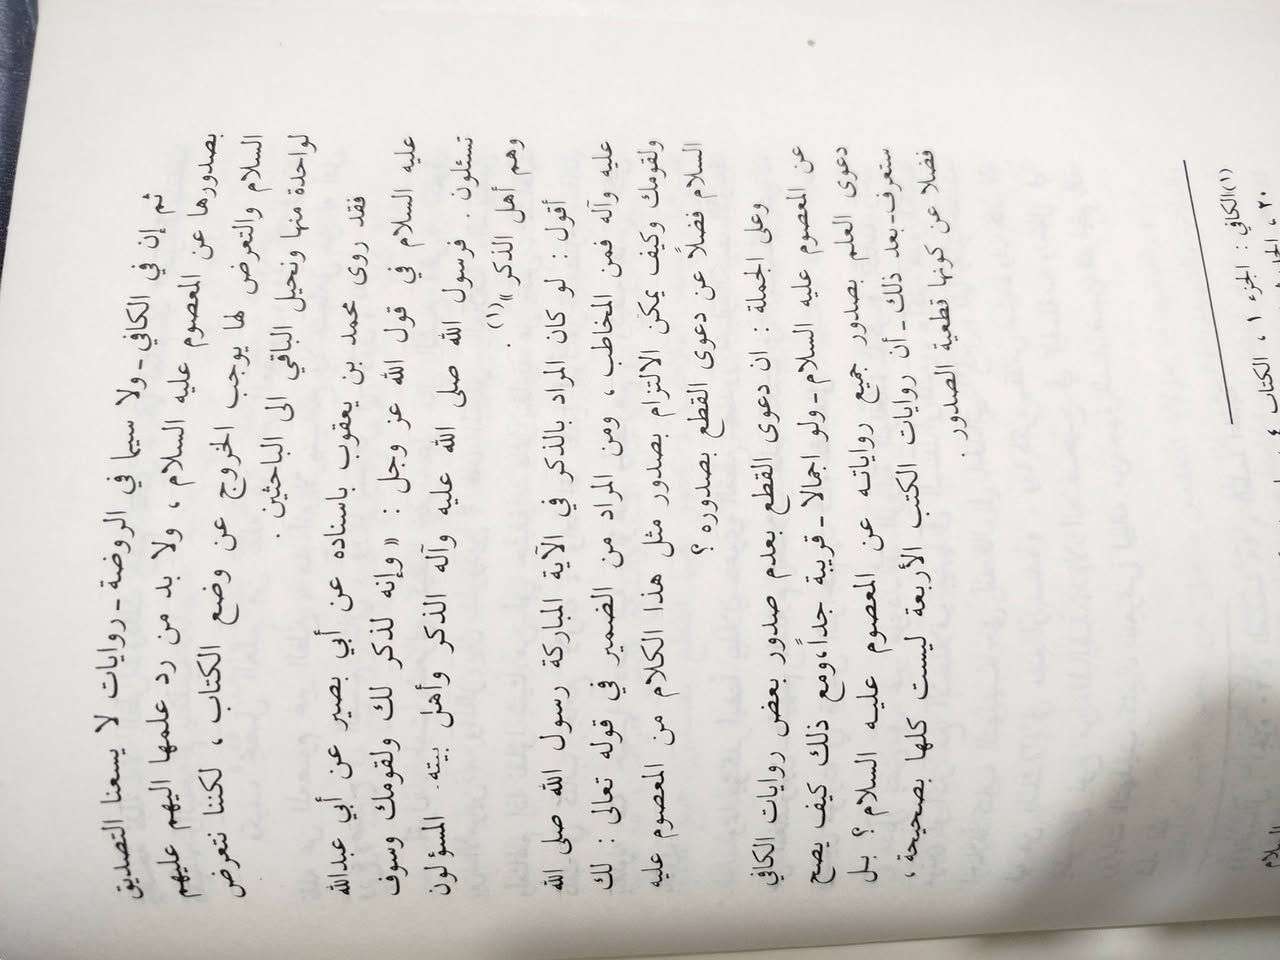 ثم إن في الكافي - ولا سيما في الروضة - روايات لا يسعنا التصديق
بصدورها عن المعصوم عليه السلام ، ولا بد من رد علمها اليهم عليهم
السلام والتعرض لها يوجب الخروج عن وضع الكتاب ، لكننا نتعرض
لواحدة منها ونحيل الباقي الى الباحثين .
فقد روى محمد بن يعقوب باسناده عن أبي بصير عن أبي عبدالله
عليه السلام في قول الله عز وجل : « وإنه لذكر لك ولقومك وسوف
تسئلون . فرسول الله صلى الله عليه وآله الذكر وأهل بيته . المسؤلون
وهم أهل الذكر »(١) .
أقول : لو كان المراد بالذكر في الآية المباركة رسول الله صلى الله
عليه وآله فمن المخاطب ، ومن المراد من الضمير في قوله تعالى : لك
ولقومك وكيف يمكن الالتزام بصدور مثل هذا الكلام من المعصوم عليه
السلام فضلاً عن دعوى القطع بصدوره ؟
وعلى الجملة : ان دعوى القطع بعدم صدور بعض روايات الكافي
عن المعصوم عليه السلام - ولو اجمالا - قريبة جداً، ومع ذلك كيف يصح
دعوى العلم بصدور جميع رواياته عن المعصوم عليه السلام ؟ بل
ستعرف - بعد ذلك - أن روايات الكتب الأربعة ليست كلها بصحيحة ،
فضلا عن كونها قطعية الصدور .
(١) الكافي : الجزء ١ ، الكتاب ٤